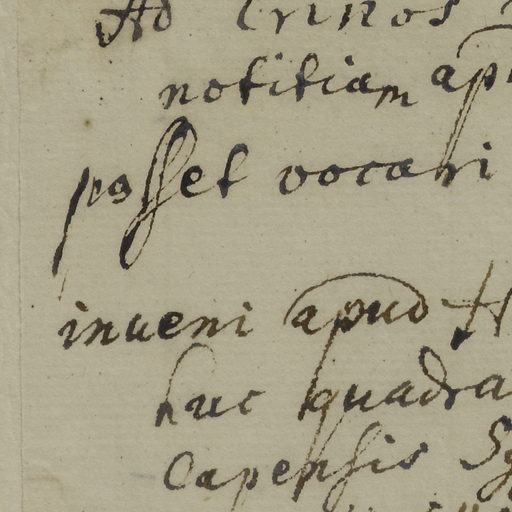 Ad Crinos
notitiam ap
posset vocari
inueni apud H
huc quadra
Capensis Sy